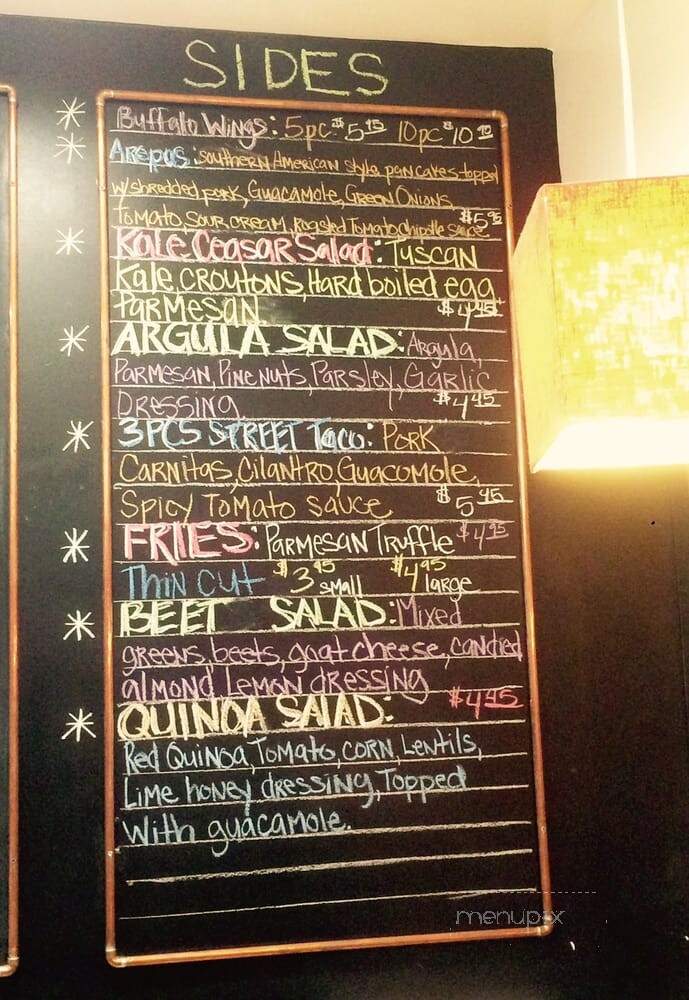 SIDES
* Buffalo Wings: 5pc $5.95 10pc $10.90
* Arepas: southern American style pancakes topped
w/shredded pork, Guacamole, Green Onions,
Tomato, sour cream, roasted Tomato chipotle sauce $5.95
* Kale Ceasar Salad: Tuscan
Kale, croutons, Hard boiled egg
Parmesan $4.95
* ARGULA SALAD: Argula,
Parmesan, Pine nuts, Parsley, Garlic
Dressing. $4.95
* 3PCS STREET Taco: Pork
Carnitas, Cilantro, Guacomole,
Spicy Tomato sauce $5.95
* FRIES: Parmesan Truffle $4.95
Thin cut $3.95 small $4.95 large
* BEET SALAD: Mixed
greens, beets, goat cheese, candied
almond, Lemon dressing $4.95
* QUINOA SALAD:
Red Quinoa, Tomato, corn, Lentils,
Lime honey dressing, Topped
With guacamole.
menupix